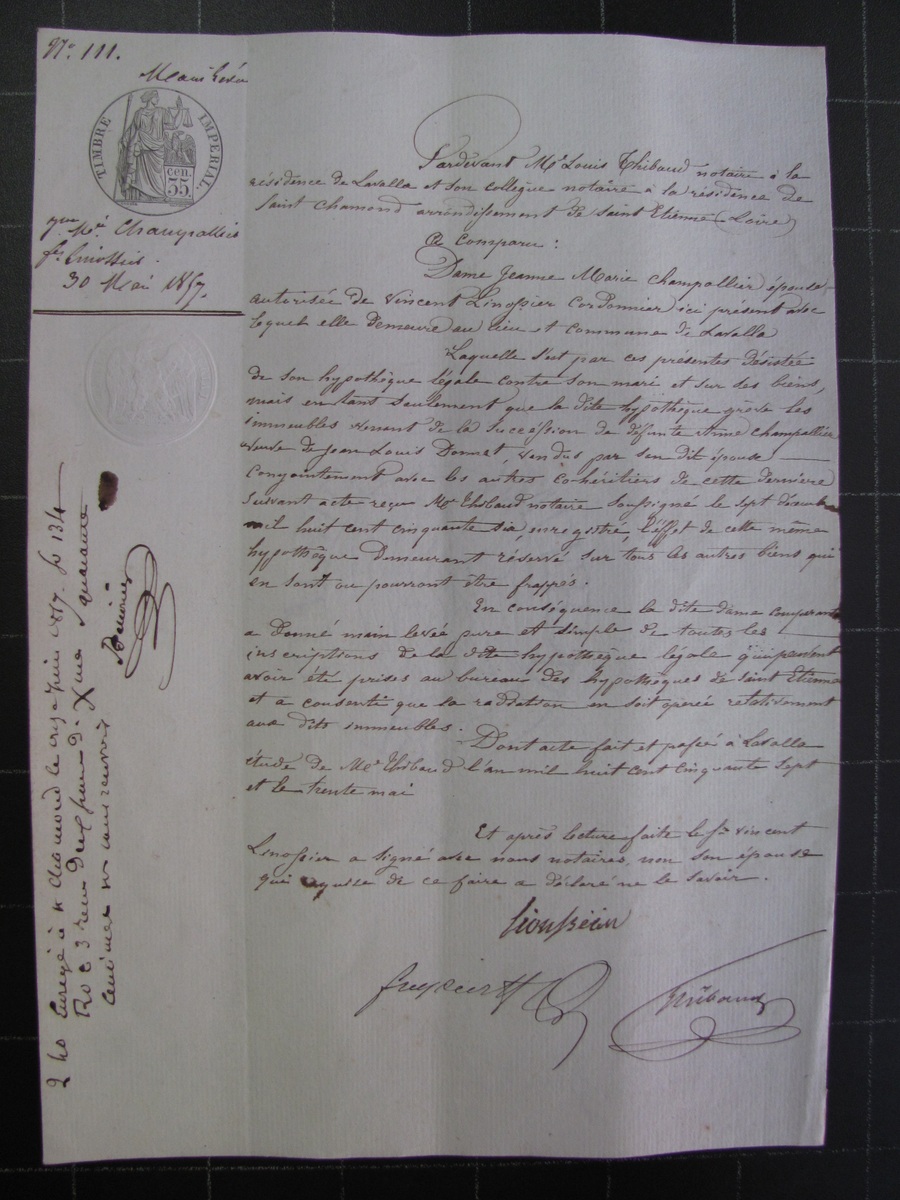 N° 111.
Main levée
TIMBRE IMPÉRIAL
35 cen.
Me Champallier
fe Linossier
30 Mai 1857.
Pardevant Me Louis Thibaud notaire à la
résidence de Lavalla et son collègue notaire à la résidence de
Saint Chamond arrondissement de Saint Etienne (Loire)
a Comparu :
Dame Jeanne Marie Champallier épouse
autorisée de Vincent Linossier Cordonnier ici présent avec
lequel elle demeure au lieu et commune de Lavalla
Laquelle s'est par ces présentes désistée
de son hypothèque légale contre son mari et sur ses biens,
mais en tant seulement que la dite hypothèque grève les
immeubles venant de la succession de défunte Anne Champallier
veuve de Jean Louis Donnet, vendus par son dit épouse
Conjointement avec les autres cohéritiers de cette dernière
suivant acte reçu Me Thibaud notaire soussigné le sept décembre
mil huit cent cinquante six, enregistré, l'effet de cette même
hypothèque Demeurant réservé sur tous les autres biens qui
en sont ou pourront être frappés.
En conséquence la dite dame comparante
a Donné main levée pure et simple de toutes les
inscriptions de la dite hypothèque légale qui peuvent
avoir été prises au bureau des hypothèques de Saint Etienne
et a consenti que la radiation en soit opérée relativement
aux dits immeubles.
Dont acte fait et passé à Lavalla
étude de Me Thibaud l'an mil huit cent cinquante sept
et le trente mai
Et après lecture faite le sr Vincent
Linossier a signé avec nous notaires, non son épouse
qui requise de ce faire a déclaré ne le savoir.
Thibaud
2 40 Enregé à St Chamond le juin 1857. fo 134
Ro C 3 reçu deux francs dixme quarante
centimes